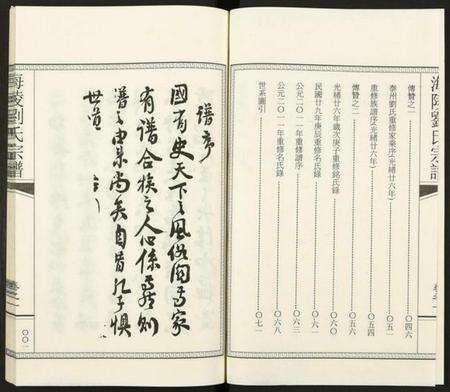 海陵劉氏宗譜
卷之一
傳贊之一 〇四六
泰州劉氏重修家乘序(光緒廿六年)
重修族譜序(光緒廿六年) 〇五四
傳贊之二 〇五六
光緒廿六年歲次庚子重修銘氏錄 〇六〇
民國廿九年庚辰重修名氏錄 〇六一
公元二〇一一年重修譜序 〇六三
公元二〇一一年重修名氏錄 〇六八
世系圖引 〇七一
譜序
國有史天下之風俗因焉家
有譜合族之人心係焉則
譜之由來尚矣自昔孔子懼
世道
海陵劉氏宗譜
卷之一
〇〇一